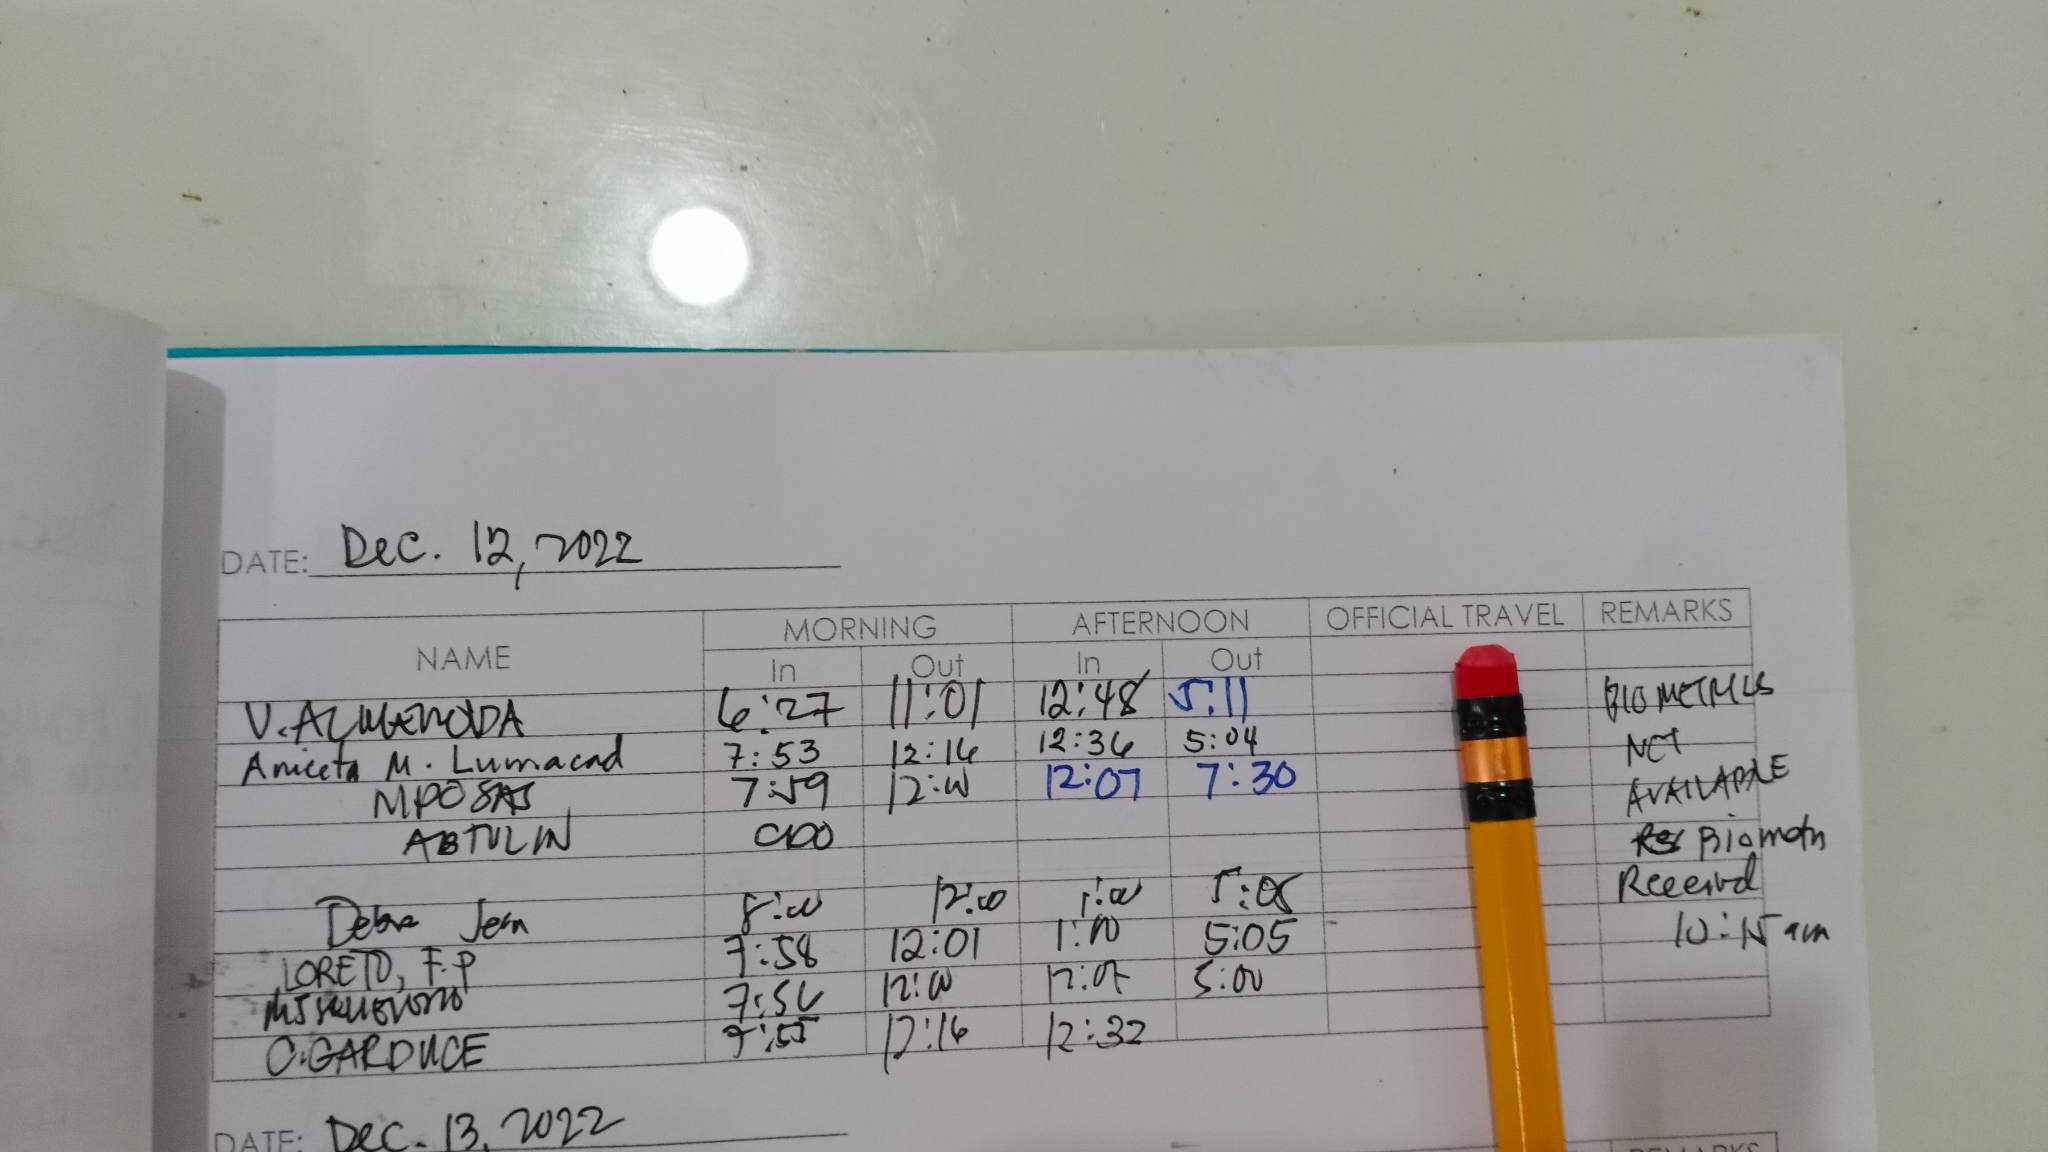 DATE: Dec. 12, 2022
NAME MORNING AFTERNOON OFFICIAL TRAVEL REMARKS
In Out In Out
V. ALMENODA 6:27 11:01 12:48 5:11 BIOMETRICS
Aniceta M. Lumacad 7:53 12:16 12:36 5:04 NOT
7:59 12:00 12:07 7:30 AVAILABLE
ABTULIN CDO
Debra Jean 8:00 12:00 1:00 5:05 Received
LORETO, F.P 7:58 12:01 1:00 5:05 10:15 am
7:56 12:00 5:00
C. GARDUCE 7:55 12:16 12:32
DATE: Dec. 13, 2022
REMARKS